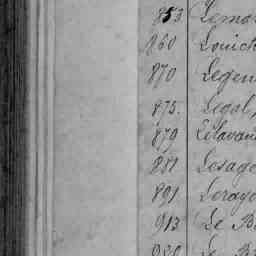 853 Lemo
860 Louich
870 Legen
875. Legal,
879 Lelavan
881 Lesage
891 Leray
913 Le B
920 Le B